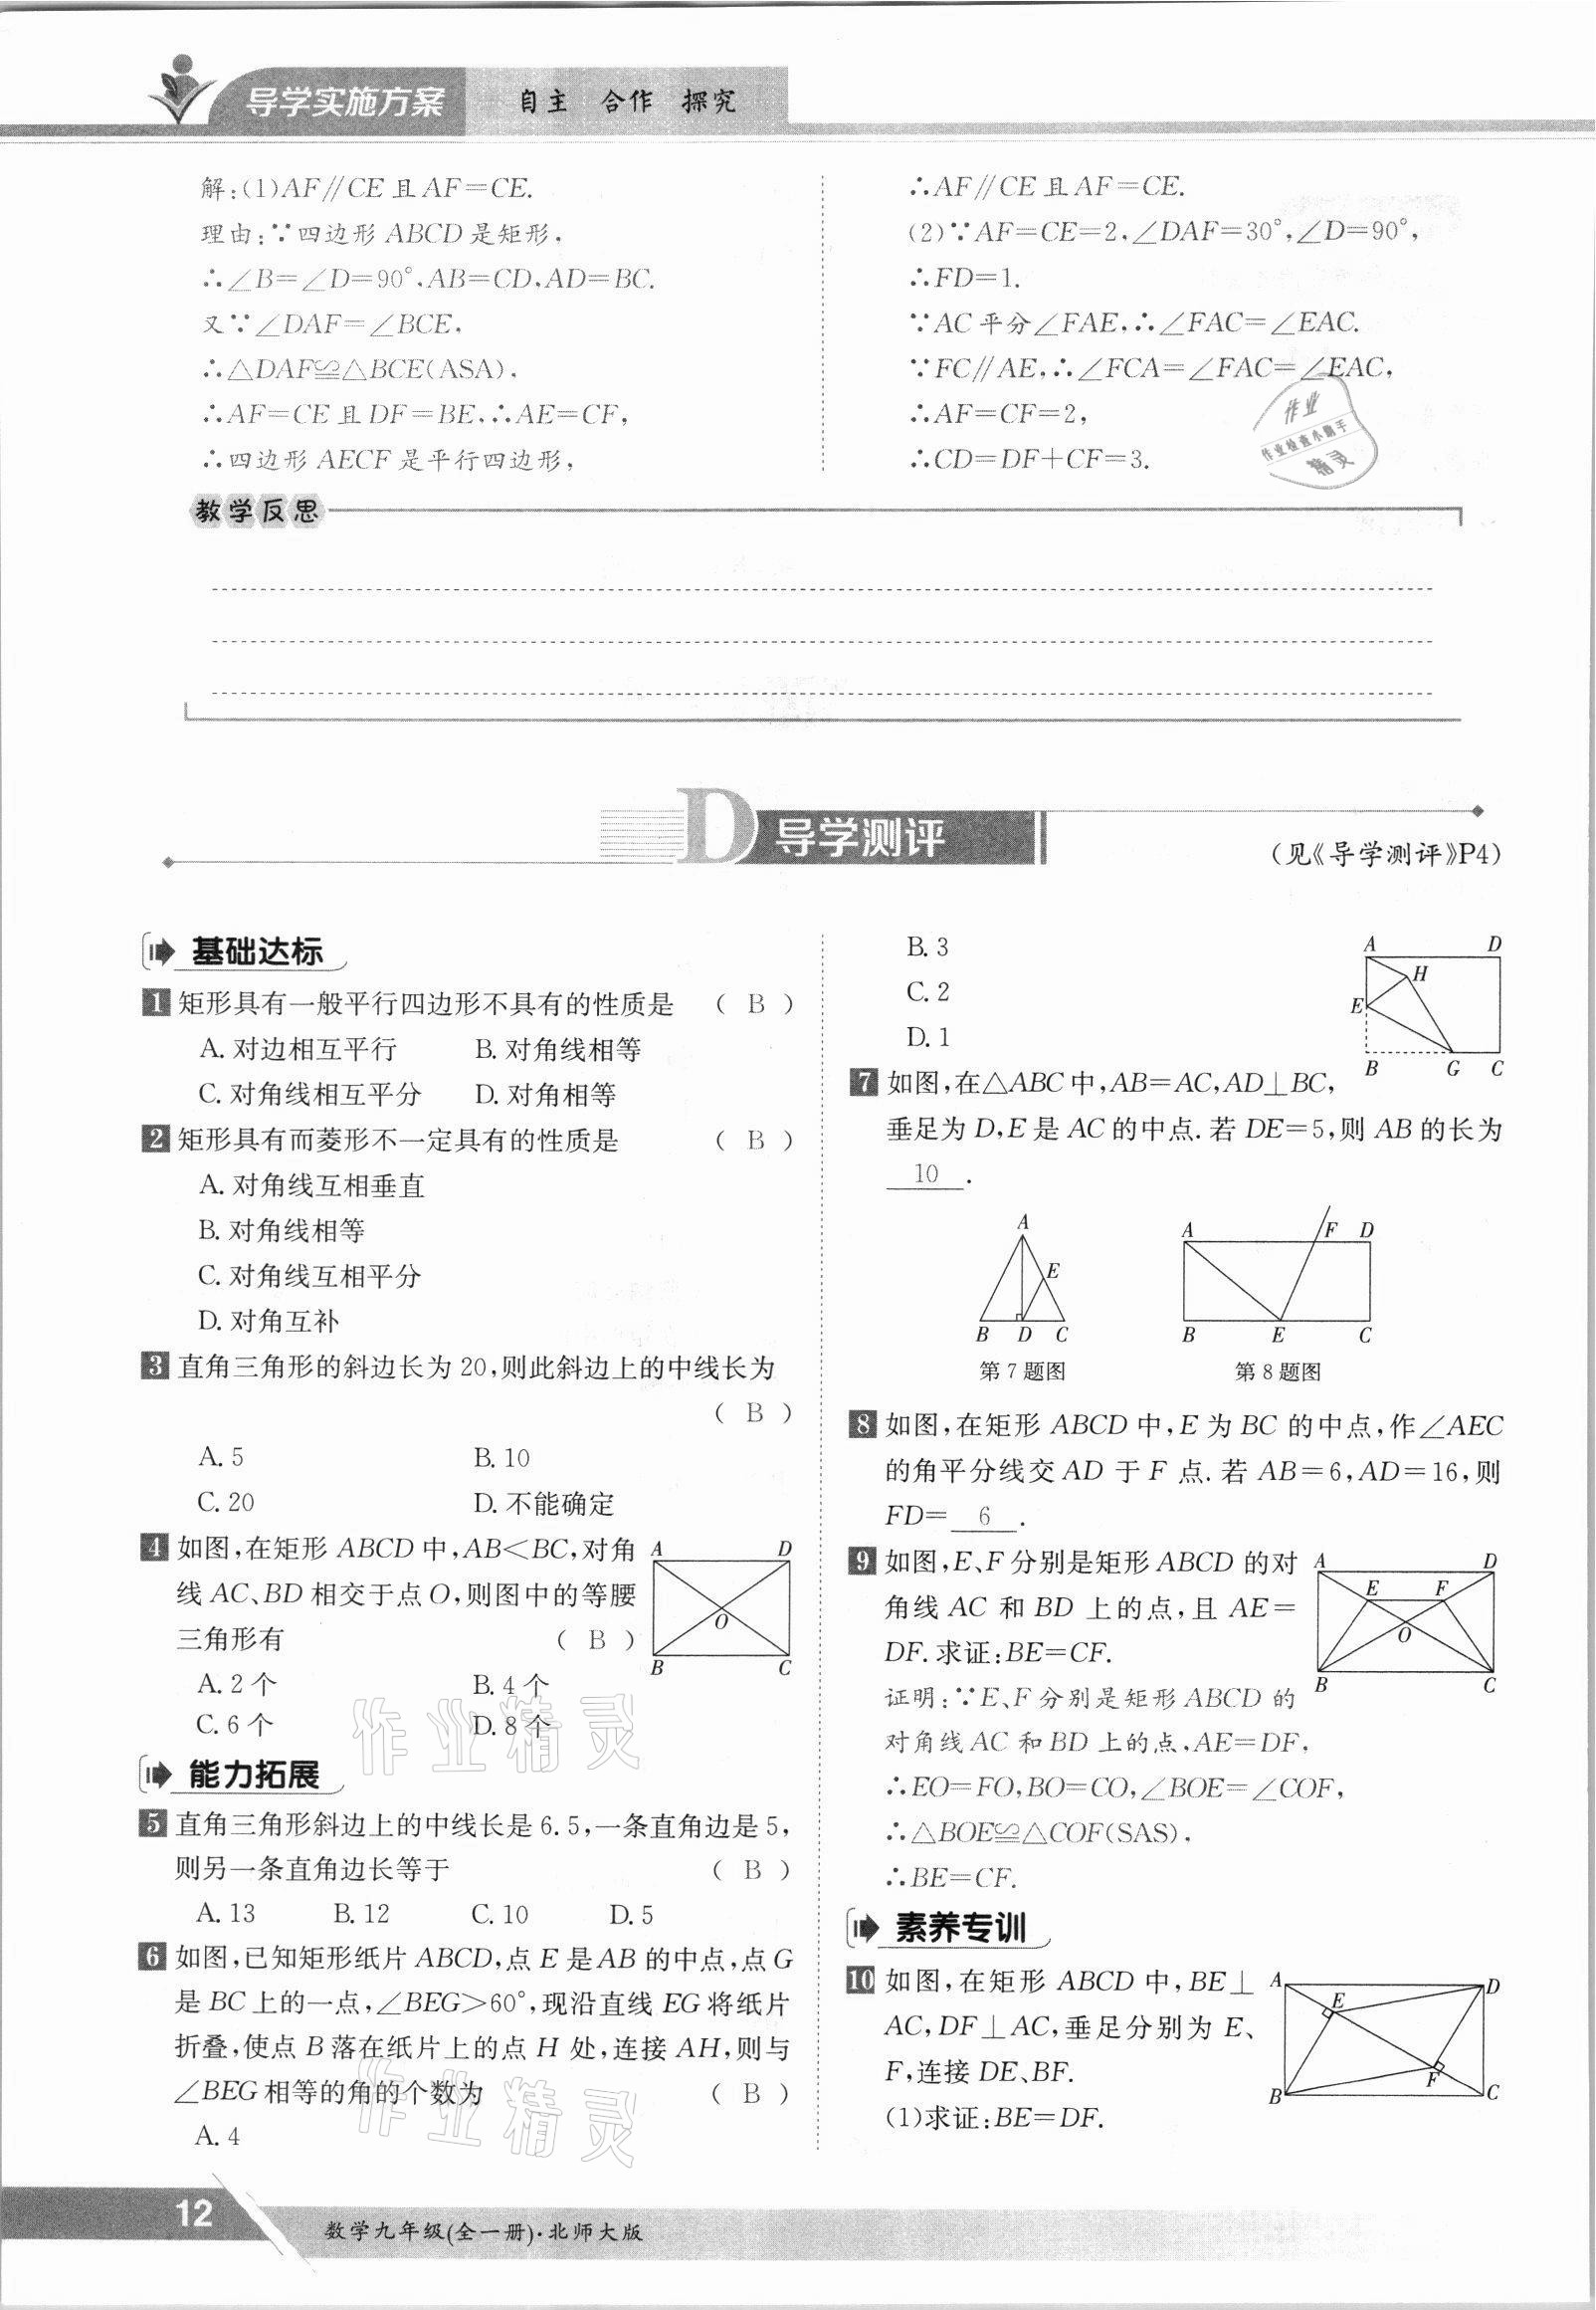 导学实施方案
自主 合作 探究
解:(1)AF∥CE且AF=CE.
理由:∵四边形ABCD是矩形,
∴∠B=∠D=90°,AB=CD,AD=BC.
又∵∠DAF=∠BCE,
∴△DAF≌△BCE(ASA),
∴AF=CE且DF=BE,∴AE=CF,
∴四边形AECF是平行四边形,
∴AF∥CE且AF=CE.
(2)∵AF=CE=2,∠DAF=30°,∠D=90°,
∴FD=1.
∵AC平分∠FAE,∴∠FAC=∠EAC.
∵FC∥AE,∴∠FCA=∠FAC=∠EAC,
∴AF=CF=2,
∴CD=DF+CF=3.
作业
作业检查小助手
精灵
教学反思
D 导学测评
(见《导学测评》P4)
基础达标
1 矩形具有一般平行四边形不具有的性质是 ( B )
A. 对边相互平行 B. 对角线相等
C. 对角线相互平分 D. 对角相等
2 矩形具有而菱形不一定具有的性质是 ( B )
A. 对角线互相垂直
B. 对角线相等
C. 对角线互相平分
D. 对角互补
3 直角三角形的斜边长为20,则此斜边上的中线长为
( B )
A. 5 B. 10
C. 20 D. 不能确定
4 如图,在矩形ABCD中,AB<BC,对角
线AC、BD相交于点O,则图中的等腰
三角形有 ( B )
A. 2个 B. 4个
C. 6个 D. 8个
A D
O
B C
能力拓展
5 直角三角形斜边上的中线长是6.5,一条直角边是5,
则另一条直角边长等于 ( B )
A. 13 B. 12 C. 10 D. 5
6 如图,已知矩形纸片ABCD,点E是AB的中点,点G
是BC上的一点,∠BEG>60°,现沿直线EG将纸片
折叠,使点B落在纸片上的点H处,连接AH,则与
∠BEG相等的角的个数为 ( B )
A. 4
B. 3
C. 2
D. 1
A D
H
E
B G C
7 如图,在△ABC中,AB=AC,AD⊥BC,
垂足为D,E是AC的中点.若DE=5,则AB的长为
10 .
A
E
B D C
第7题图
A F D
B E C
第8题图
8 如图,在矩形ABCD中,E为BC的中点,作∠AEC
的角平分线交AD于F点.若AB=6,AD=16,则
FD= 6 .
9 如图,E、F分别是矩形ABCD的对
角线AC和BD上的点,且AE=
DF.求证:BE=CF.
证明:∵E、F分别是矩形ABCD的
对角线AC和BD上的点,AE=DF,
∴EO=FO,BO=CO,∠BOE=∠COF,
∴△BOE≌△COF(SAS),
∴BE=CF.
A D
E F
O
B C
素养专训
10 如图,在矩形ABCD中,BE⊥
AC,DF⊥AC,垂足分别为E、
F,连接DE、BF.
(1)求证:BE=DF.
A D
E
F
B C
作业精灵
作业精灵
12
数学九年级(全一册)·北师大版